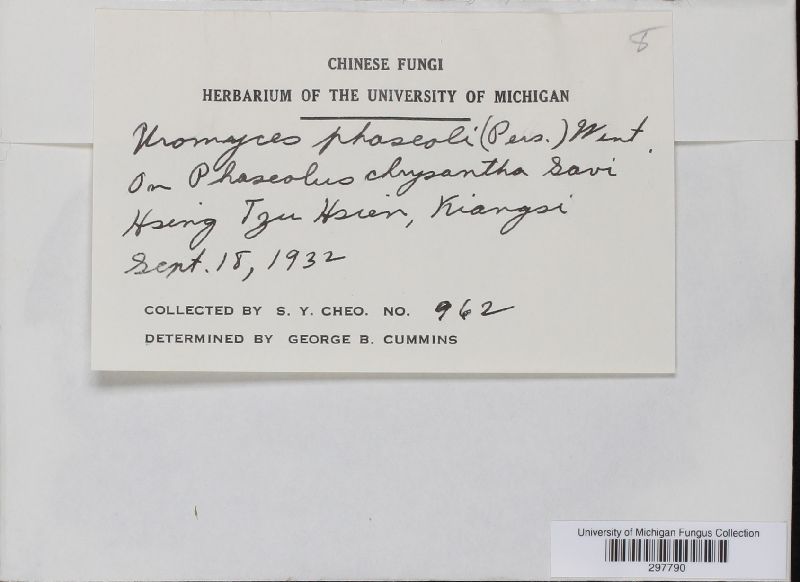 8
CHINESE FUNGI
HERBARIUM OF THE UNIVERSITY OF MICHIGAN
Uromyces phaseoli (Pers.) Wint.
On Phaseolus chrysantha Savi
Hsing Tzu Hsien, Kiangsi
Sept. 18, 1932
COLLECTED BY S. Y. CHEO. NO. 962
DETERMINED BY GEORGE B. CUMMINS
University of Michigan Fungus Collection
297790